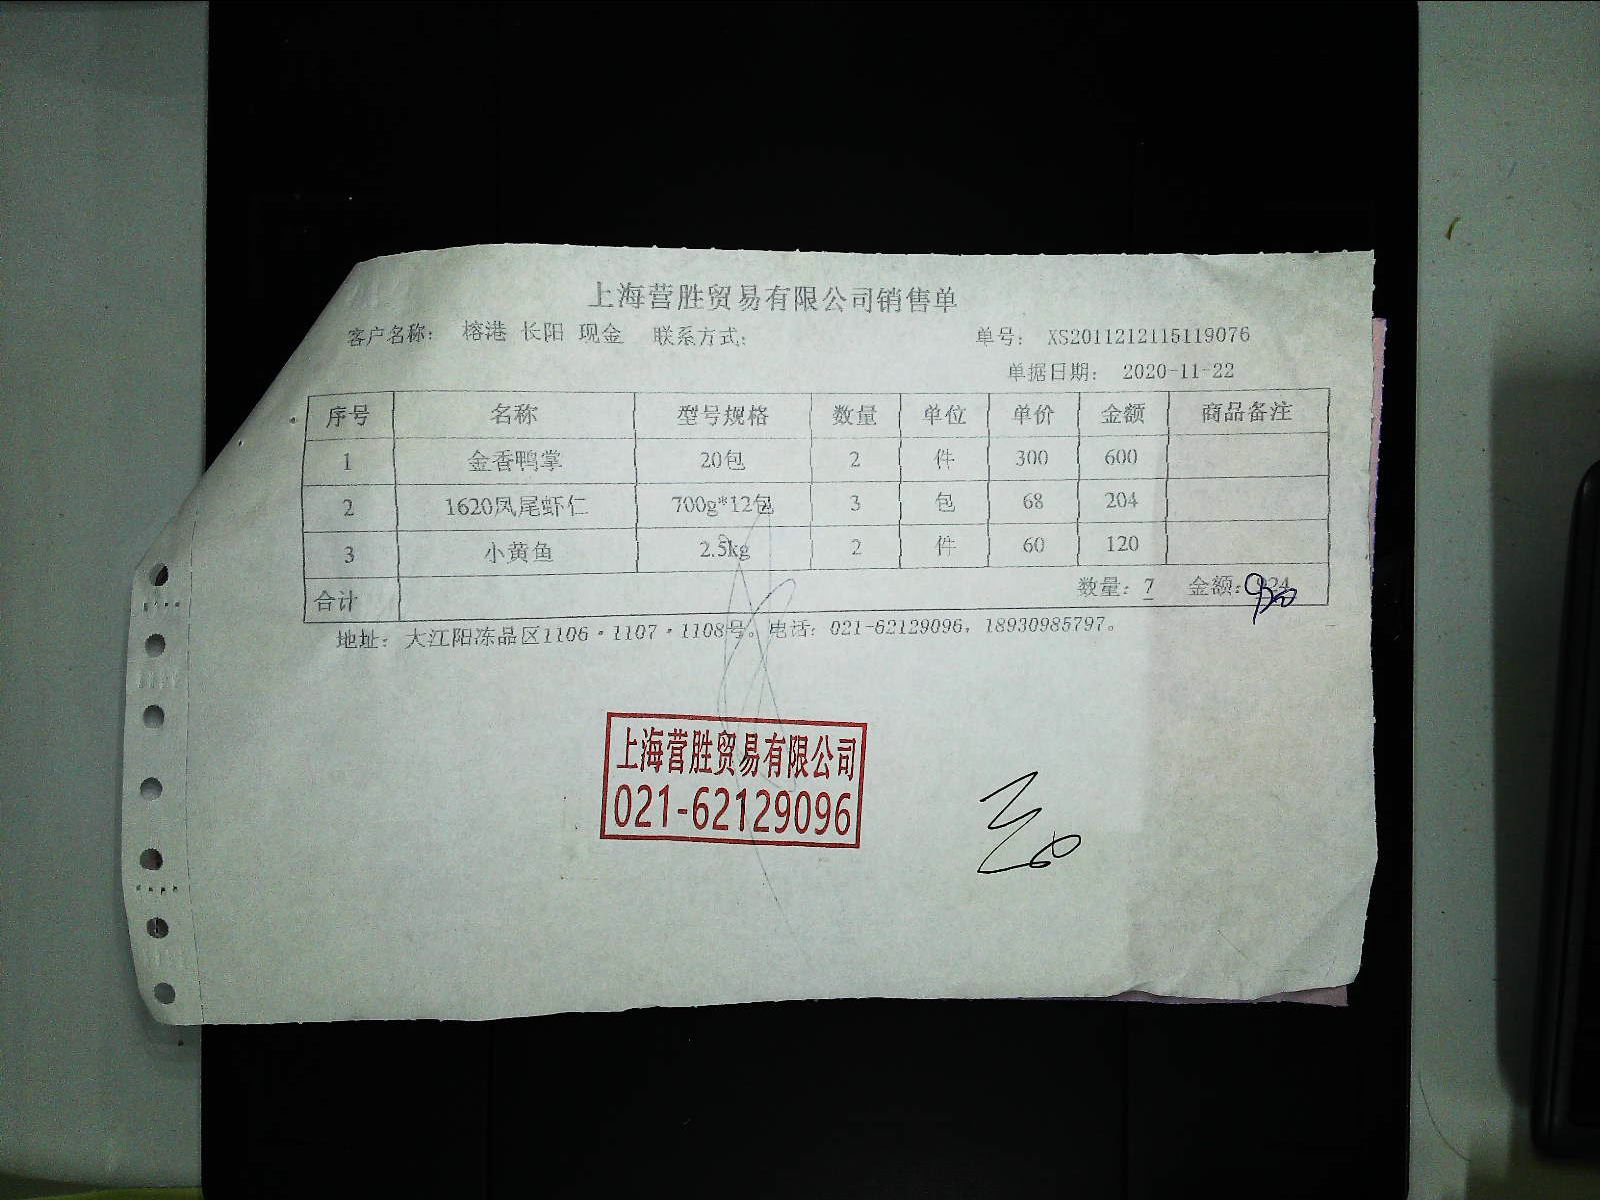 上海营胜贸易有限公司销售单
客户名称： 榕港 长阳 现金 联系方式： 单号： XS2011212115119076
单据日期： 2020-11-22
序号 名称 型号规格 数量 单位 单价 金额 商品备注
1 金香鸭掌 20包 2 件 300 600
2 1620凤尾虾仁 700g*12包 3 包 68 204
3 小黄鱼 2.5kg 2 件 60 120
合计 数量：7 金额：920
地址： 大江阳冻品区1106·1107·1108号。电话：021-62129096，18930985797。
上海营胜贸易有限公司
021-62129096